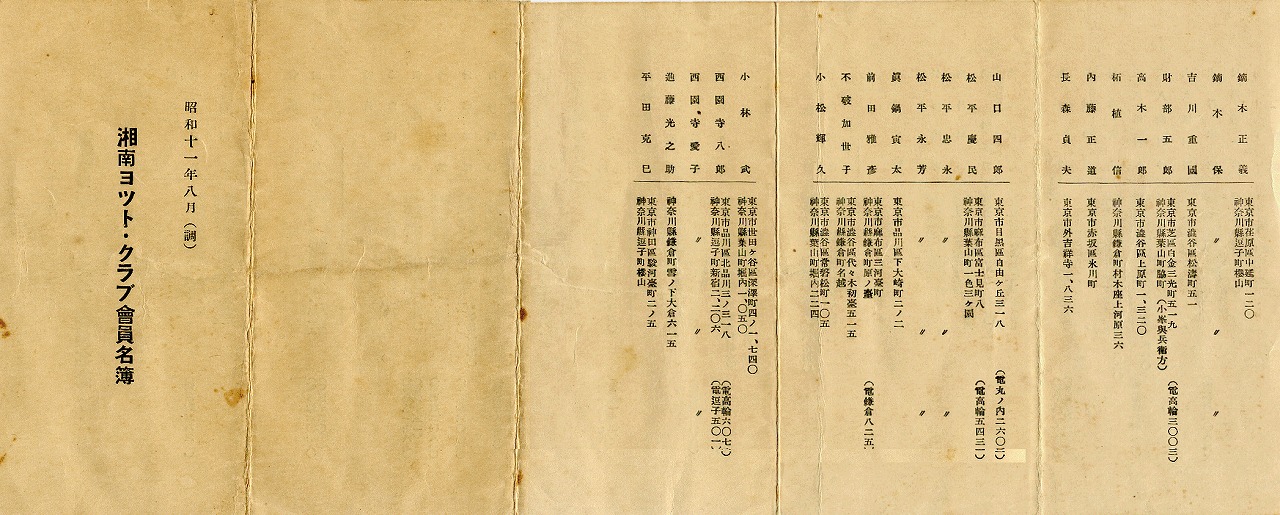 鏑木正義 東京市荏原區中延町一二〇
神奈川縣逗子町櫻山
鏑木保 〃 〃 〃
吉川重國 東京市澁谷區松濤町五一
財部五郎 東京市芝區白金三光町五一九 (電高輪三〇〇三)
神奈川縣葉山町脇町(小峯與兵衛方)
高木一郎 東京市澁谷區上原町一、三二〇
柘植信 神奈川縣鎌倉町材木座上河原三六
內藤正道 東京市赤坂區氷川町
長森貞夫 東京市外吉祥寺一、八三六
山口四郎 東京市目黑區自由ヶ丘三一八 (電丸ノ内二六〇二)
松平慶民 東京市麻布區富士見町八 (電高輪五四三一)
神奈川縣葉山町一色三ヶ園
松平忠永 〃 〃 〃
松平永芳 〃 〃 〃
眞鍋寅太 東京市品川區下大崎町二ノ二
前田雅彥 東京市麻布區三河臺町
神奈川縣鎌倉町原ノ臺 (電鎌倉八二五)
不破加世子 東京市澁谷區代々木初臺五一五
神奈川縣鎌倉町名越
小松輝久 東京市澁谷區常磐松町一〇五
神奈川縣葉山町堀內二二四
小林武 東京市世田ヶ谷區深澤町四ノ一、七四〇
神奈川縣葉山町堀內一、〇五〇
西園寺八郎 東京市品川區北品川三ノ三一八 (電高輪六〇七)
神奈川縣逗子町新宿二、二〇六 (電逗子五〇一)
西園寺愛子 〃 〃 〃
進藤光之助 神奈川縣鎌倉町雪ノ下大倉六一五
平田克巳 東京市神田區駿河臺町二ノ五
神奈川縣逗子町櫻山
昭和十一年八月(調)
湘南ヨツト・クラブ會員名簿